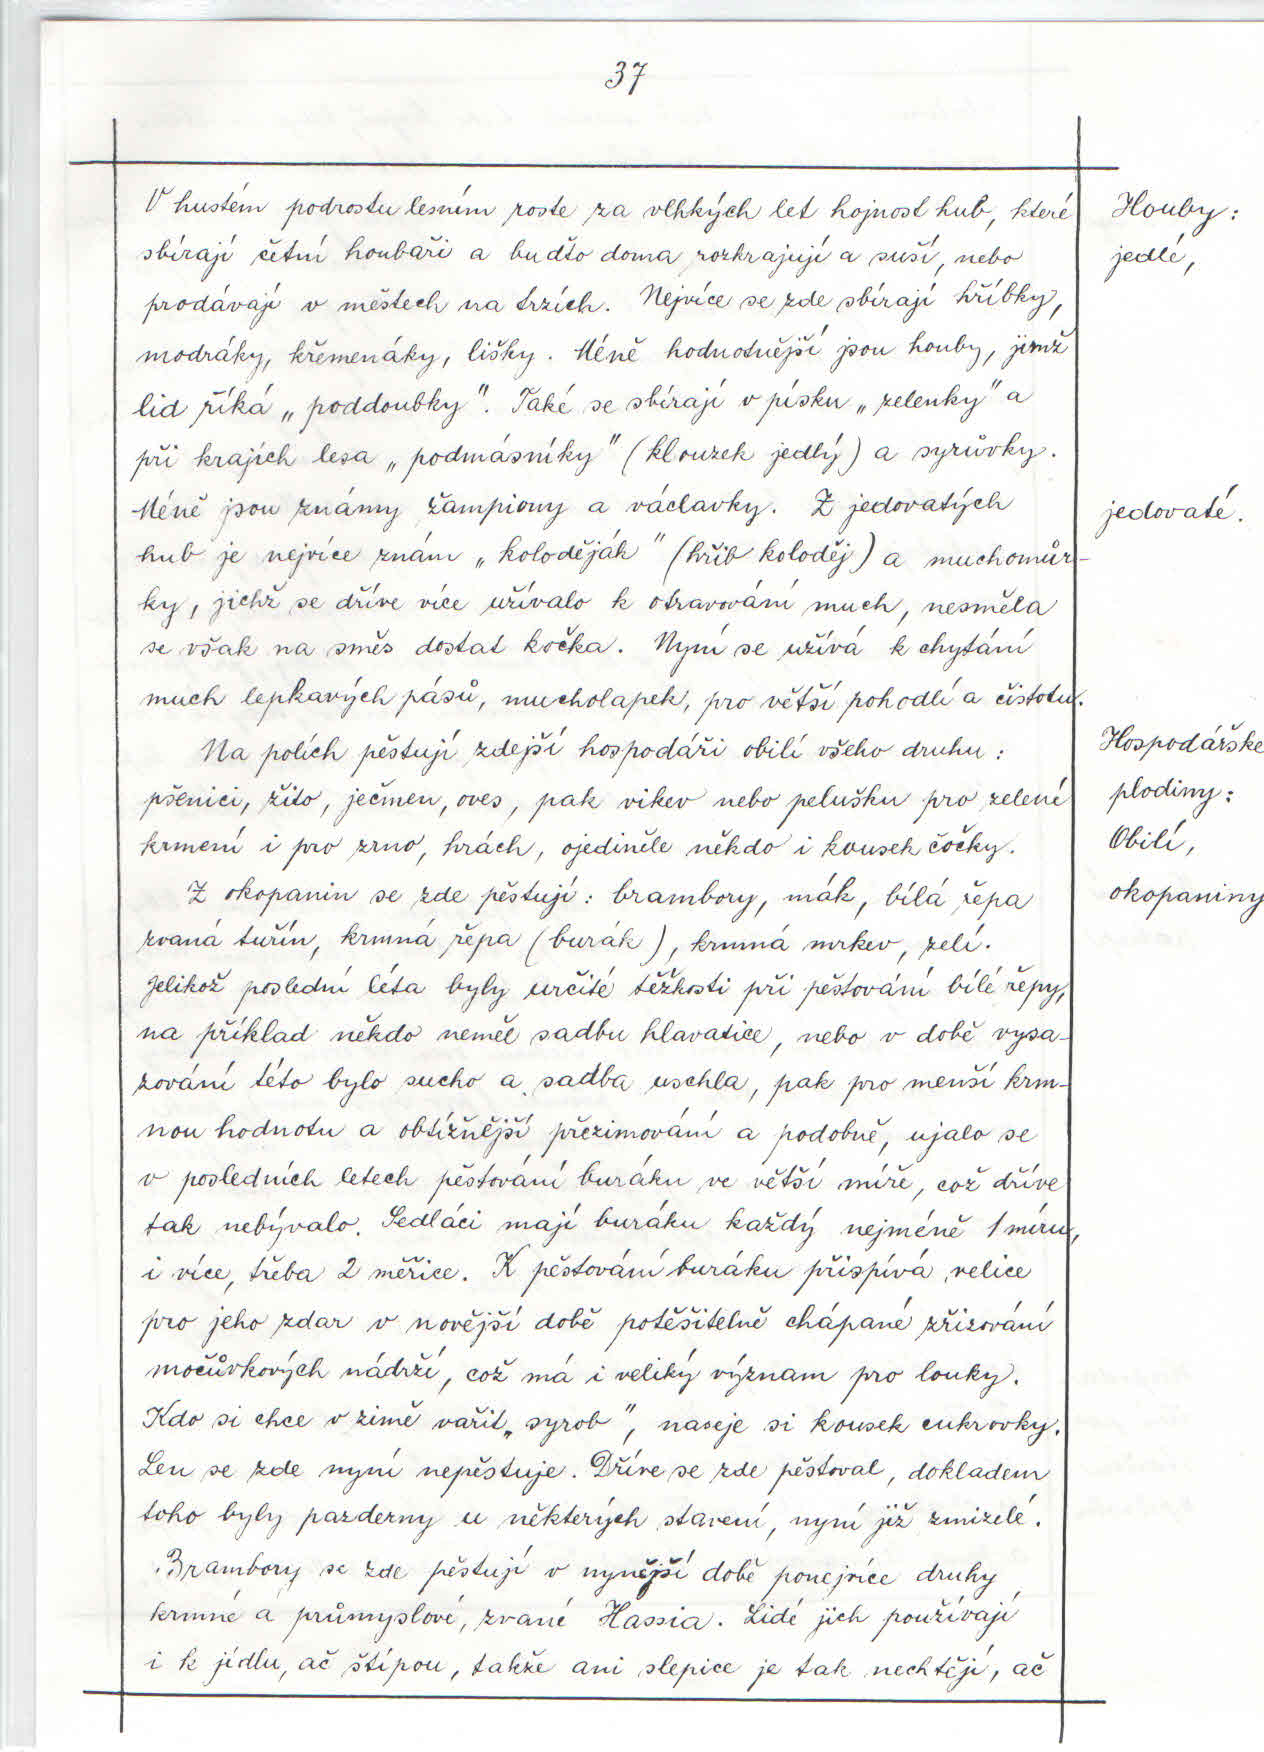 37
V hustém podrostu lesním roste za vlhkých let hojnost hub, které
Houby:
sbírají četní houbaři a buďto doma rozkrajují a suší, nebo
jedlé,
prodávají v městech na trzích. Nejvíce se zde sbírají hříbky,
modráky, křemenáky, lišky. Méně hodnotnější jsou houby, jimž
lid říká „poddoubky". Také se sbírají v písku „zelenky" a
při krajích lesa „podmásníky" (klouzek jedlý) a syrůvky.
Méně jsou známy žampiony a václavky. Z jedovatých
jedovaté.
hub je nejvíce znám „koloděják" (hřib koloděj) a muchomůr-
ky, jichž se dříve více užívalo k otravování much, nesměla
se však na směs dostat kočka. Nyní se užívá k chytání
much lepkavých pásů, mucholapek, pro větší pohodlí a čistotu.
Na polích pěstují zdejší hospodáři obilí všeho druhu:
Hospodářske
pšenici, žito, ječmen, oves, pak vikev nebo pelušku pro zelené
plodiny:
krmení i pro zrno, hrách, ojediněle někdo i kousek čočky.
Obilí,
Z okopanin se zde pěstují: brambory, mák, bílá řepa
okopaniny
zvaná tuřín, krmná řepa (burák), krmná mrkev, zelí.
Jelikož poslední léta byly určité těžkosti při pěstování bílé řepy,
na příklad někdo neměl sadbu hlavatice, nebo v době vysa-
zování této bylo sucho a sadba uschla, pak pro menší krm-
nou hodnotu a obtížnější přezimování a podobně, ujalo se
v posledních letech pěstování buráku ve větší míře, což dříve
tak nebývalo. Sedláci mají buráku každý nejméně 1 míru,
i více, třeba 2 měřice. K pěstování buráku přispívá velice
pro jeho zdar v novější době potěšitelně chápané zřizování
močůvkových nádrží, což má i veliký význam pro louky.
Kdo si chce v zimě vařit „syrob", naseje si kousek cukrovky.
Len se zde nyní nepěstuje. Dříve se zde pěstoval, dokladem
toho byly pazderny u některých stavení, nyní již zmizelé.
Brambory se zde pěstují v nynější době ponejvíce druhy
krmné a průmyslové, zvané Hassia. Lidé jich používají
i k jídlu, ač štípou, takže ani slepice je tak nechtějí, ač